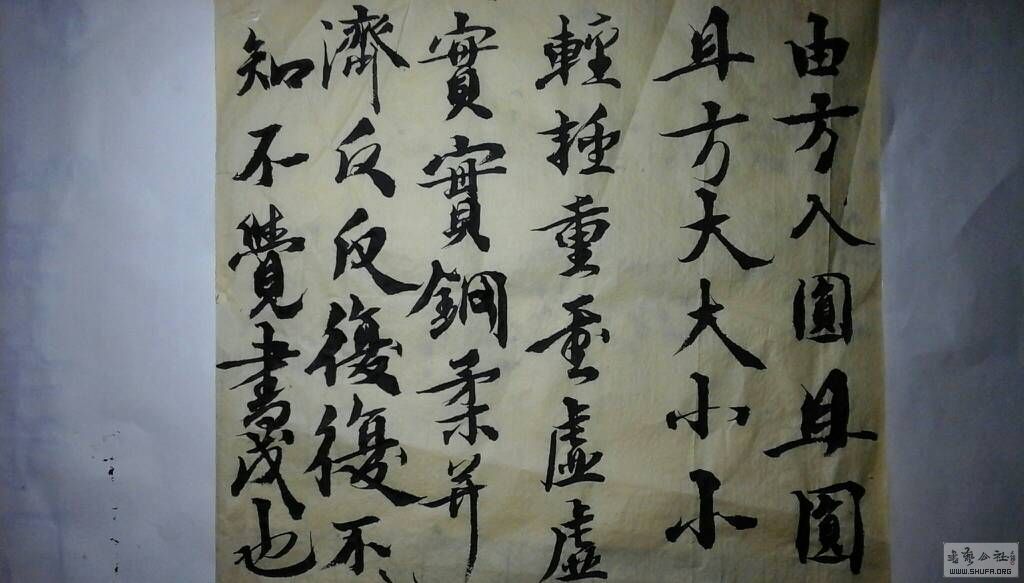 由方入圓且圓
且方大大小小
輕輕重重虛虛
實實鋼柔并
濟反反復復不
知不覺書成也
WWW.SHUFA.ORG